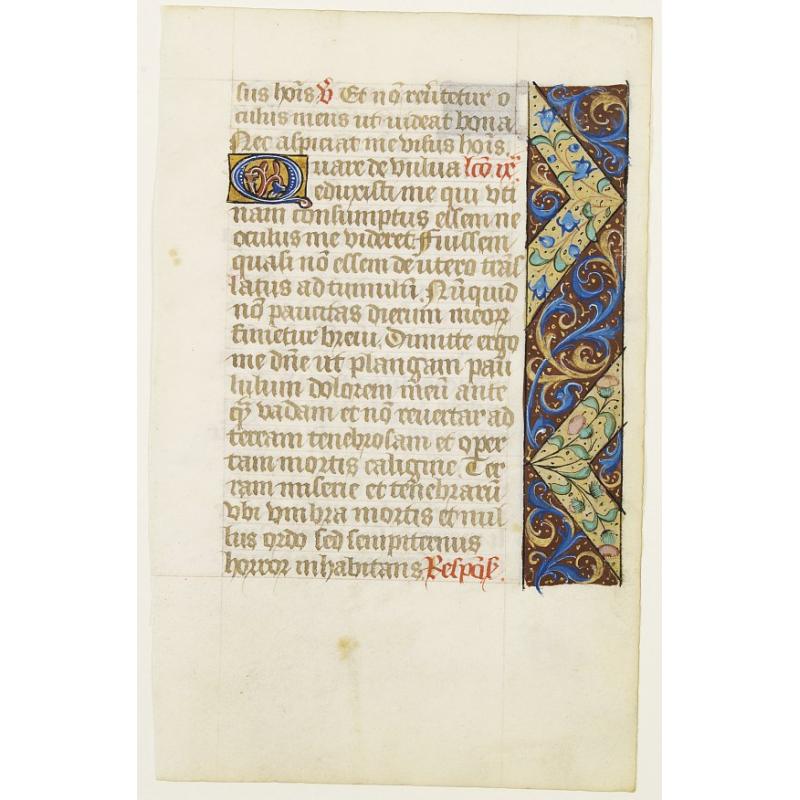 sus hoĩs v̄ Et nõ reũtetur o
culus meus ut uideat bona
Nec aspiciat me visus hoĩs.
Quare de vulua lcõ ix.
eduxisti me qui vti
nam consumptus essem ne
oculus me videret Fuissem
quasi nõ essem de utero trãs
latus ad tumulũ. Nũquid
nõ paucitas dierum meoꝝ
finietur breui. Dimitte ergo
me dñe ut plangam pau
lulum dolorem meũ ante
qꝫ vadam et nõ reuertar ad
terram tenebrosam et oper
tam mortis caligine Ter
ram miserie et tenebrarũ
vbi vmbra mortis et nul
lus ordo sed sempiternus
horror inhabitans.